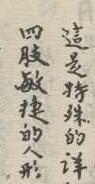 這是特殊的詳
四肢敏捷的人形